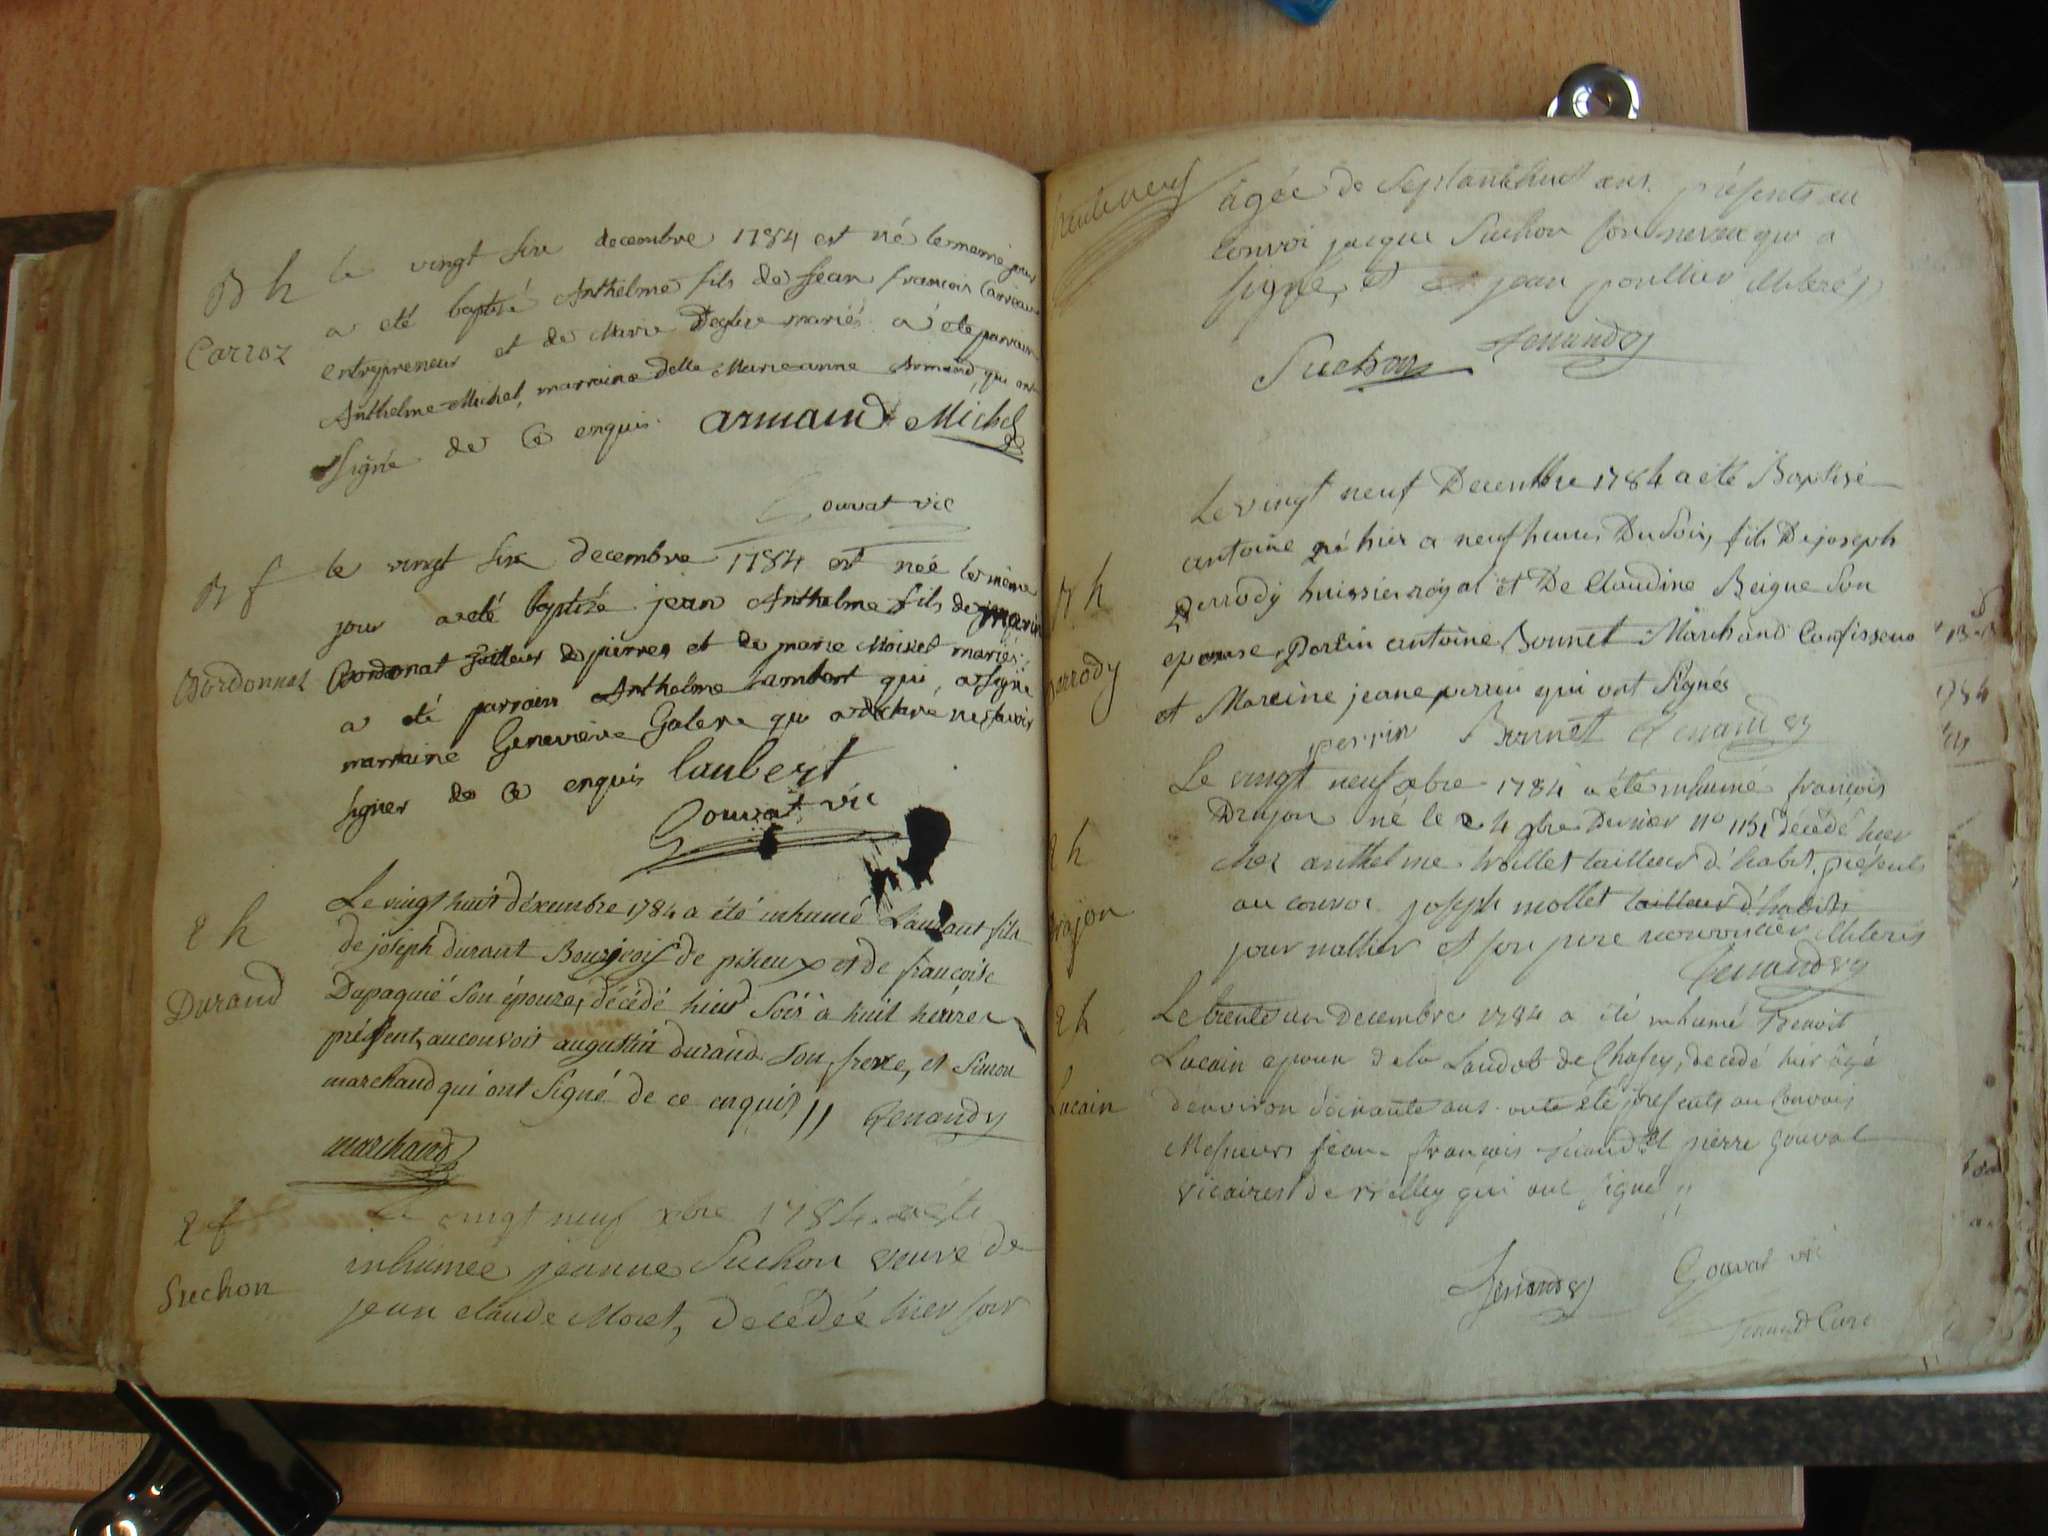 B h
Carroz
le vingt six decembre 1784 est né le meme jour
a eté baptisé Anthelme fils de Jean francois Carroz
entrepreneur et de Marie Deglise mariés a eté parrain
Anthelme Michel, marraine delle Marieanne Armand, qui ont
signé de ce enquis. armand Michel
Gouvat vic
B f
Bordonnat
le vingt six decembre 1784 est néé le même
jour a eté baptisé jean Anthelme fils de
Bordonnat tailleur de pierres et de marie Moiret mariés,
a eté parrain Anthelme Lambert qui a signé
marraine Geneviève Galere qui a declaré ne scavoir
signer de ce enquis laubert
Gouvat vic
S h
Durand
Le vingt huit décembre 1784 a été inhumé Laurant fils
de joseph durant Bourjeois de pisieux et de francoise
Dapaquié son épouze, décédé hier soir à huit heures
présent, au convoit augustin durand son frere, et Simon
marchand qui ont signé de ce enquis // Genandy
marchand
S f
Suchon
Le vingt neuf xbre 1784. a eté
inhumée jeanne Suchon veuve de
jean claude Moret, décédée hier soir
trente neuf
agée de septantehuit ans. présents au
convoi jacque Suchon son neveu qui a
signé, et jean poullier illiteré //
Suchon Genandy
B h
perrody
Le vingt neuf Decembre 1784 a eté Baptisé
antoine né hier a neuf heures Du soir, fils De joseph
perrody huissier royal et De Claudine Beigue son
epouse, Partin antoine Bonnet Marchand Confisseur
et Mareine jeane perrin qui ont signés
perrin Bonnet Genandy
S h
Drajon
Le vingt neuf xbre 1784 a été inhumé françois
Drajon né le 24 9bre Dernier n° 1151 décédé hier
chez anthelme mollet tailleur d'habit, présent
au convoi joseph mollet tailleur d'habits
journallier et son pere nourricier illiterés
Genandy
S h
Lucain
Le trente un decembre 1784 a été inhumé Benoit
Lucain epoux de la Laudot de Chasey, decedé hier agé
denviron soixante ans ont été présents au Convois
Messieurs jean françois et pierre Gouvat
vicaires de Bielley qui ont signé //
Genandy Gouvat vic
Curé
1784